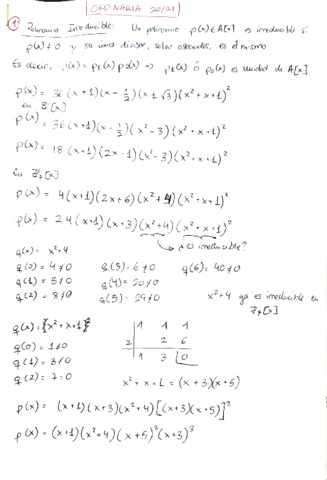 ORDINARIA 20/21
① Polinomio Irreducible: Un polinomio p(x)∈A[x] es irreducible si
p(x)≠0 y su único divisor, salvo asociados, es él mismo.
Es decir, p(x) = p₁(x) p₂(x) ⇒ p₁(x) ó p₂(x) es unidad de A[x]
p(x) = 36 (x+1)(x-1/2)(x±√3)(x²+x+1)²
en [x]
p(x) = 36(x+1)(x-1/2)(x²-3)(x²+x+1)²
p(x) = 18(x+1)(2x-1)(x²-3)(x²+x+1)²
en ℤ₇[x]
p(x) = 4(x+1)(2x+6)(x²+4)(x²+x+1)²
p(x) = 24(x+1)(x+3)(x²+4)(x²+x+1)²
¿es irreducible?
q(x) = x²+4
q(0) = 4≠0 q(3) = 6≠0 q(6) = 40≠0
q(1) = 5≠0 q(4) = 20≠0
q(2) = 8≠0 q(5) = 29≠0 x²+4 ya es irreducible en
ℤ₇[x]
q(x) = x²+x+1 1 1 1
q(0) = 1≠0 2 2 6
q(1) = 3≠0 1 3 0
q(2) = 7=0
x²+x+1 = (x+3)(x+5)
p(x) = (x+1)(x+3)(x²+4)[(x+3)(x+5)]²
p(x) = (x+1)(x²+4)(x+5)²(x+3)³